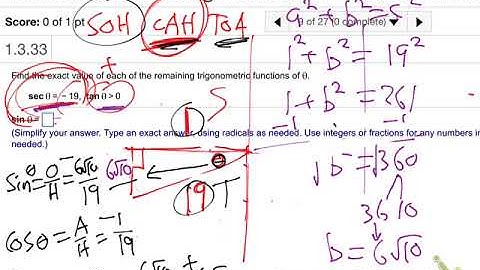 Score: 0 of 1 pt
SOH CAH TOA
9 of 27 (0 complete)
1.3.33
Find the exact value of each of the remaining trigonometric functions of θ.
sec θ = − 19, tan θ > 0
sin θ =
(Simplify your answer. Type an exact answer, using radicals as needed. Use integers or fractions for any numbers in
needed.)
a² + b² = c²
1² + b² = 19²
1 + b² = 361
-1 -1
√b² = √360
36 10
b = 6√10
+
1 S
θ
19 T
6√10
Sinθ = O/H = -6√10/19
cosθ = A/H = -1/19